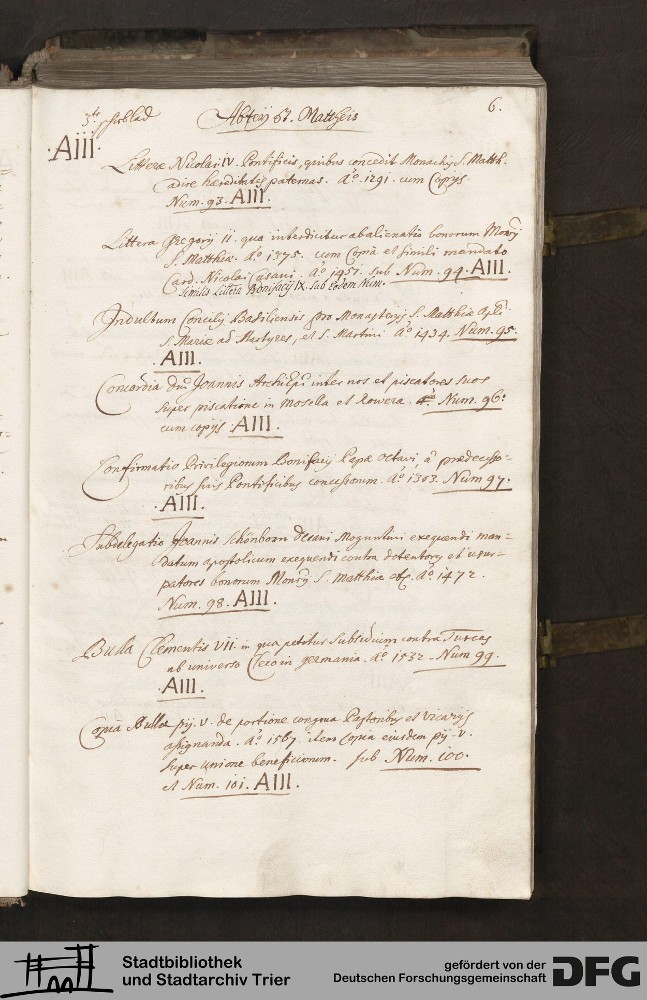 3te schoblad Abtey St. Mattheis 6.
·AIII·
Litteræ Nicolai IV. Pontificis, quibus concedit Monachis S. Matth.
adire hæreditates paternas. Aō. 1291. cum Copiis
Num. 93. AIII.
Littera Gregorij 11. qua interdicitur abalienatio bonorum Monrij
S. Matthiæ. Aō 1375. cum Copia et simili mandato
Card. Nicolai Casani. Aō. 1451. sub Num. 94. AIII.
Similis Littera Bonifacij IX. sub eodem Num.
Indultum Concilij Basiliensis pro Monasterijs S. Matthiæ Apli
S. Mariæ ad Martyres, et S. Martini Aō 1434. Num. 95.
·AIII.
Concordia Dni Joannis ArchiEpi inter nos et piscatores suos
super piscatione in Mosella et Rowera. Num. 96.
cum copijs ·AIII.
Confirmatio Privilegiorum Bonifacij Papæ Octavi, à prædecesso=
ribus suis Pontificibus concessorum. Aō. 1303. Num 97.
·AIII.
Subdelegatio Joannis Schönborn Decani Moguntini exequendi man=
datum apostolicum exequendi contra detentores et usur=
patores bonorum Monrij S. Matthiæ etc. Aō. 1472.
Num. 98. AIII.
Bulla Clementis VII. in qua petitur Subsidium contra Turcas
ab universo Clero in germania. Aō. 1532. Num 99.
·AIII.
Copia Bullæ pij. V. de portione congrua Pastoribus et Vicarijs
assignanda. Aō. 1567. item Copia eiusdem pij. V.
super unione beneficiorum. sub Num. 100.
et Num. 101. AIII.
Stadtbibliothek
und Stadtarchiv Trier
gefördert von der
Deutschen Forschungsgemeinschaft
DFG